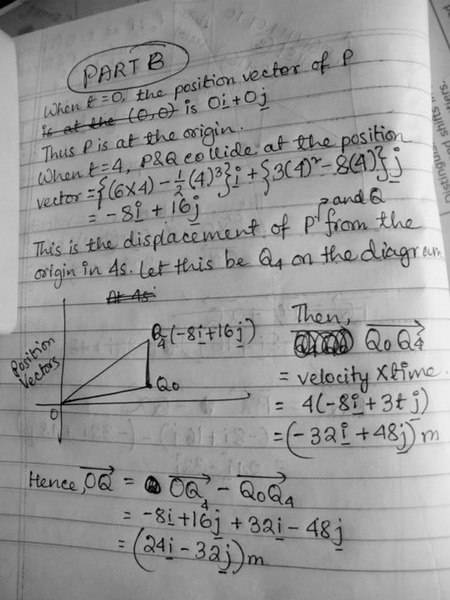 PART B
When t=0, the position vector of P
is at the (0,0) is 0i+0j
Thus P is at the origin.
When t=4, P&Q collide at the position
vector = {(6x4) - 1/2(4)³}i + {3(4)² - 8(4)}j
= -8i + 16j
This is the displacement of P and Q from the
origin in 4s. Let this be Q4 on the diagram
At 4s
Position
Vectors
Q4(-8i+16j)
Q0
0
Then,
Q0Q4
= velocity x time.
= 4(-8i + 3tj)
= (-32i + 48j)m
Hence, OQ = OQ4 - Q0Q4
= -8i + 16j + 32i - 48j
= (24i - 32j)m